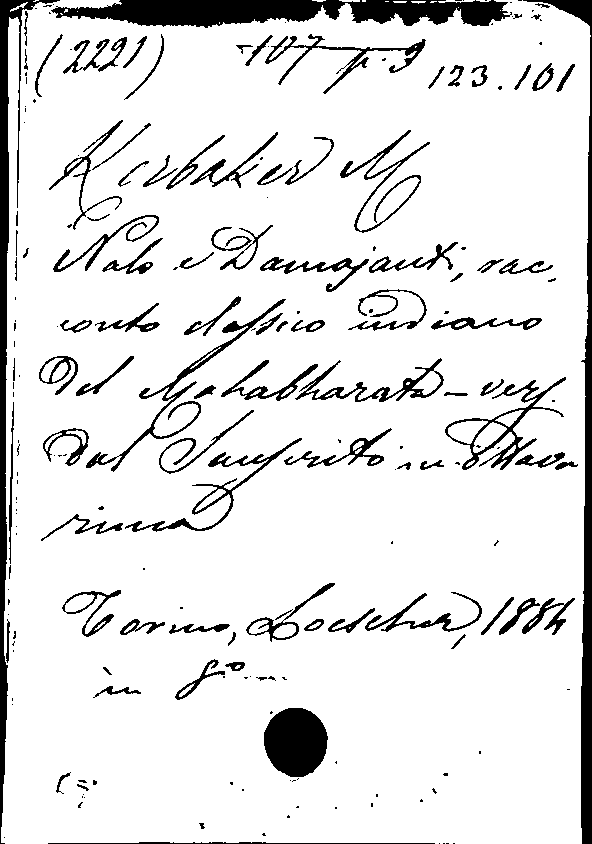 (2221) 107 p. 3 123.101
Kerbaker M
Nalo e Damajanti, rac,
conto classico indiano
del Mahabharata - vers.
dal Sanscrito in ottava
rima
Torino, Loescher, 1884
in 8º